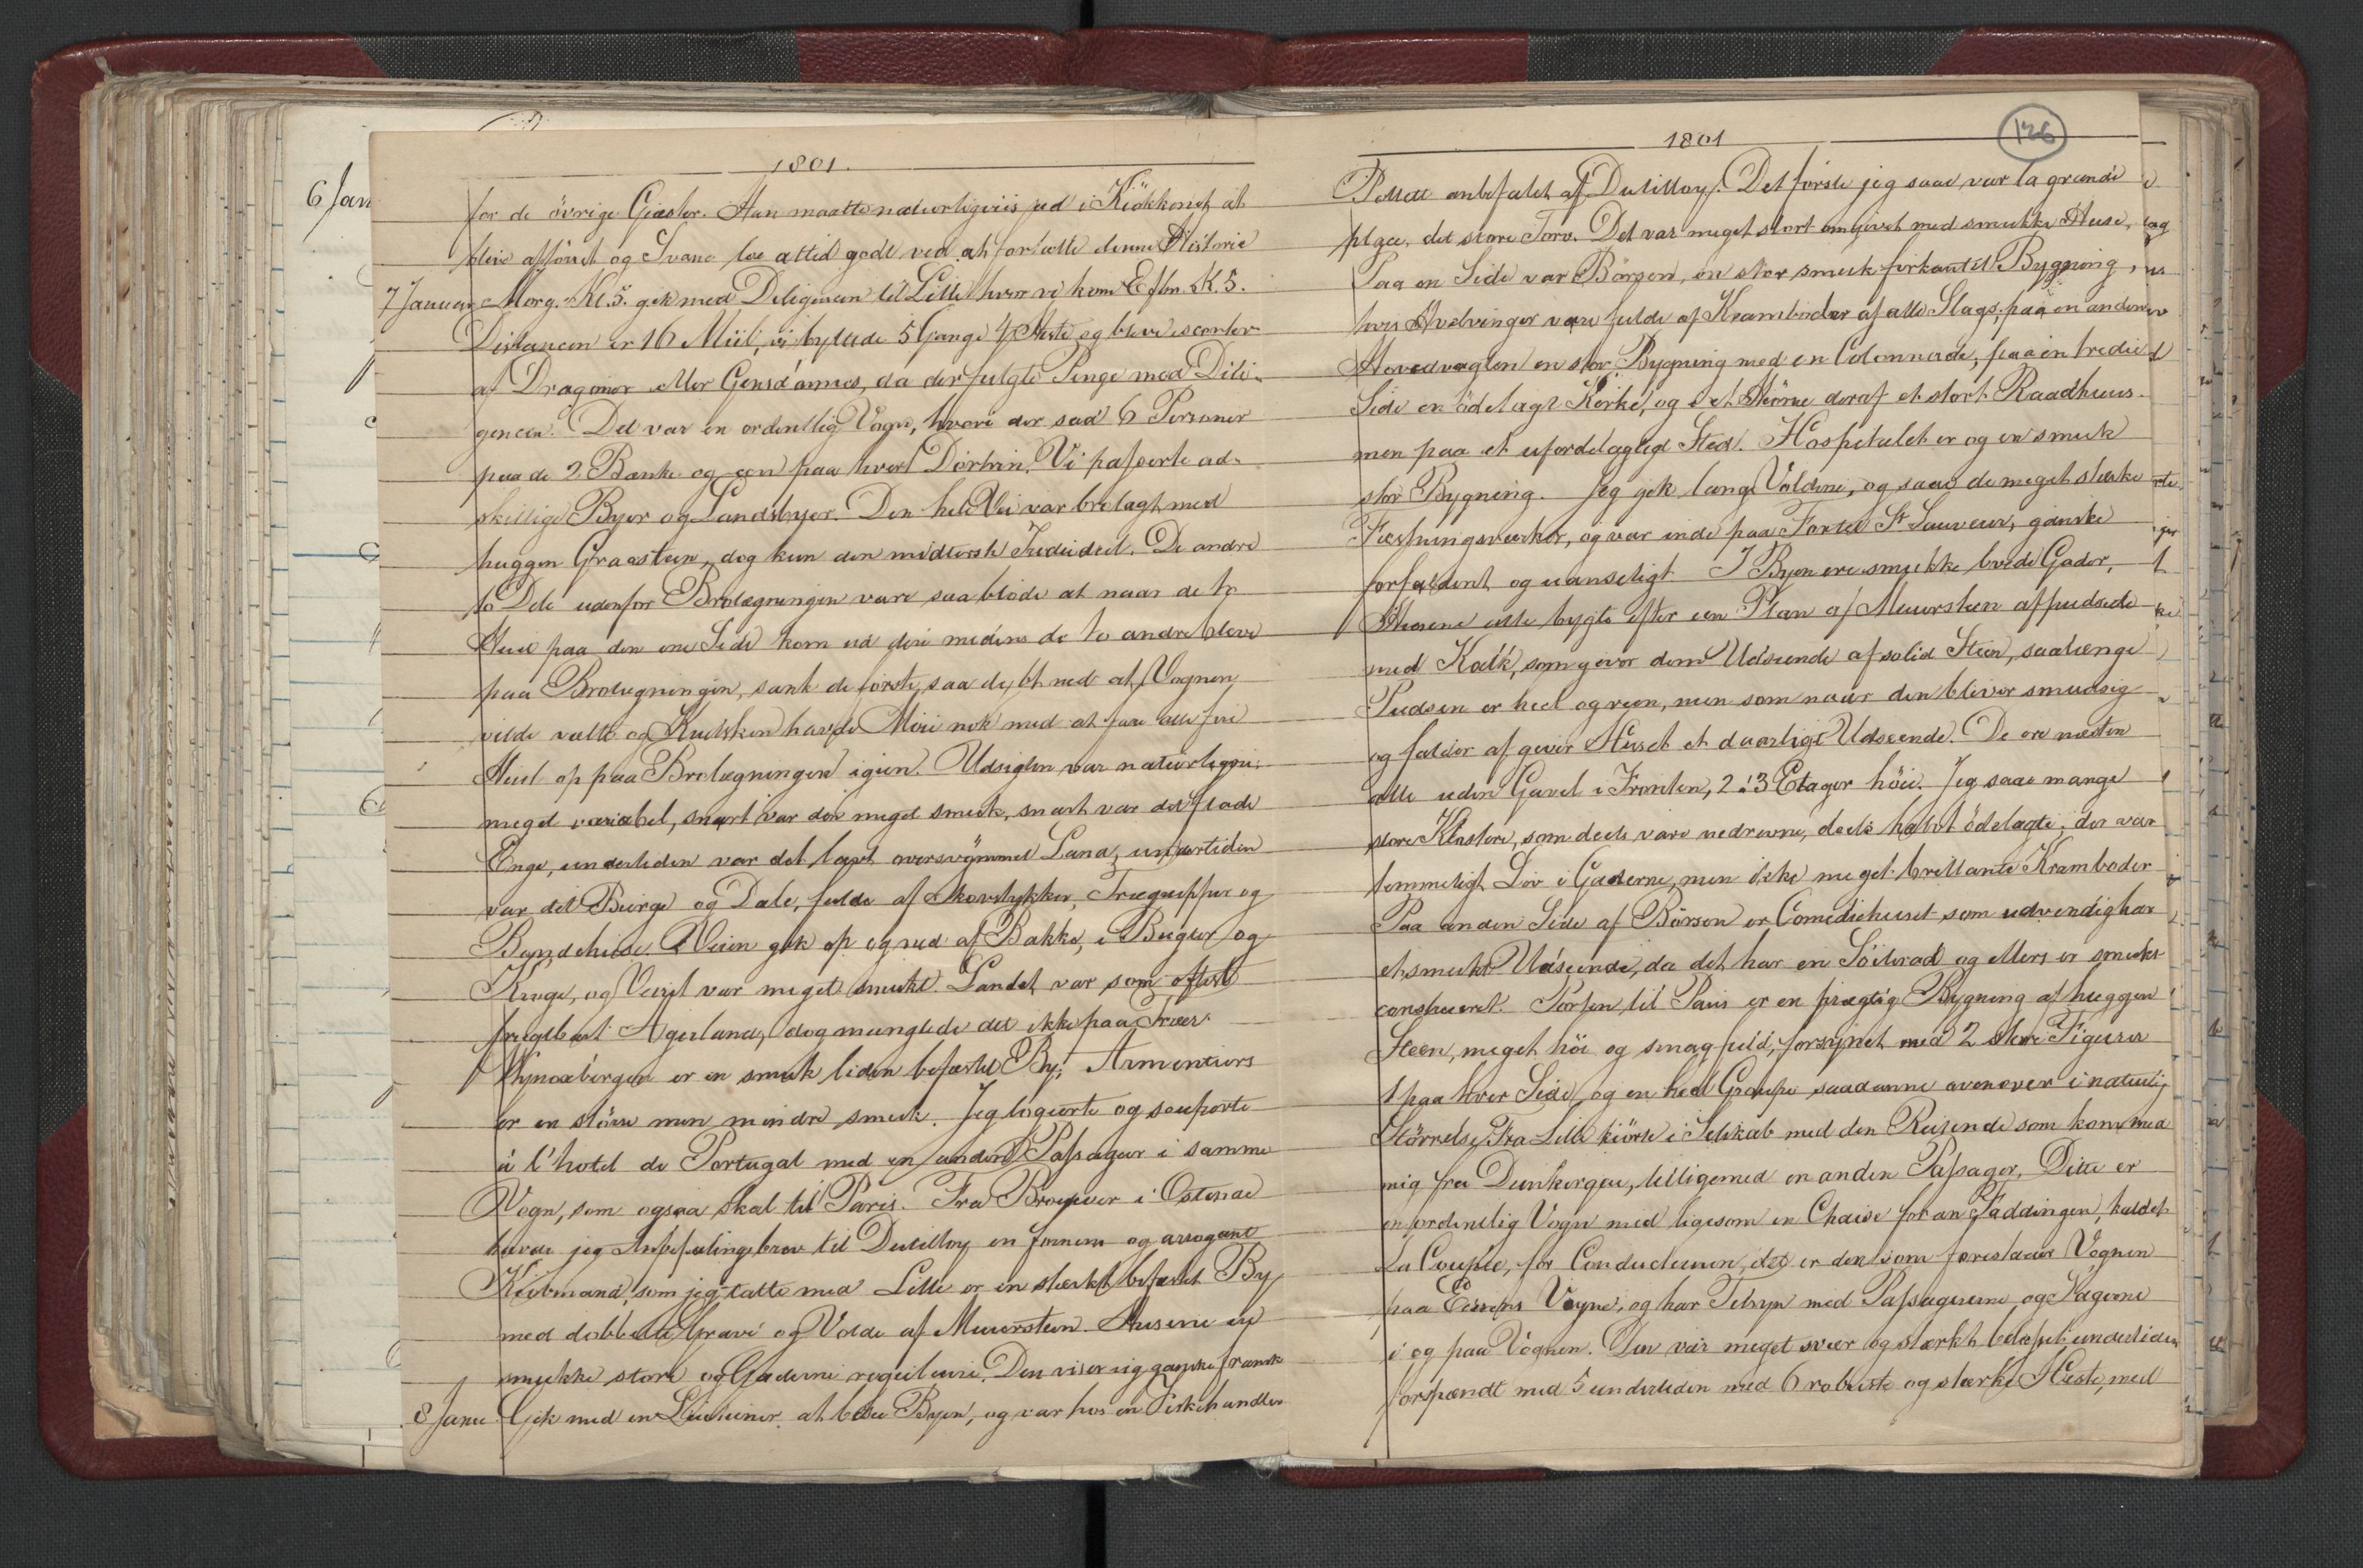 6 Jan
1801.
for de övrige Giæster. Han maatte naturligviis ud i Kiökkenet at
blive afförret og Svane loe altid godt ved at fortælle denne Historie
7 Januar Morg. Kl. 5. gik med Deligencen til Lille hvor vi kom Eftm K. 5.
Distancen er 16 Miil, vi byttede 5 Gange 4 Heste og bleve escorter
af Dragoner eller Gensd'armes, da der fulgte Penge med Dili-
gencen. Det var en ordentlig Vogn, hvori der sad 6 Personer
paa de 2 Bænke og een paa hvert Dörtrin. Vi passerte ad-
skillige Byer og Landsbyer. Den hele Vei var brolagt med
huggen Graasteen, dog kun den midterste Trediedeel. De andre
to Dele udenfor Brolægningen vare saa blöde at naar de to
Hiul paa den ene Side kom ud deri medens de to andre bleve
paa Brolægningen, sank de förste saa dybt ned at Vognen
vilde vælte og Kudsken havde Möie nok med at faae alle fire
Hiul op paa Brolægningen igien. Udsigten var naturligvi-
meget variabel, snart var den meget smuk, snart var det flade
Enge, undertiden var det lavt oversvömmet Land, undertiden
var det Bierge og Dale, fulde af Skovstykker, Trægrupper og
Bøndehuse. Veien gik op og ned af Bakke, i Bugter og
Kroge, og Veiret var meget smukt. Landet var som oftest
frugtbart Agerland, dog manglede det ikke paa Træer.
Wynoxbergen er en smuk liden befæstet By; Armentiers
er en större men mindre smuk. Jeg logerte og souperte
à l'hotel de Portugal med en anden Passager i samme
Vogn, som ogsaa skal til Paris. Fra Brouwer i Ostende
havde jeg Anbefalingsbrev til Dutilloy en fornem og arrogant
Kiöbmand, som jeg talte med Lille er en stærkt befæstet By
med dobbelte Grave og Volde af Muursteen. Husene ey
smukke store og Gaderne regulaire. Den viser sig ganske fransk
8 Janu Gik med en Leietiener at besee Byen, og var hos en Fiskehandler
1801
126
anbefalet af Dutilloy. Det förste jeg saae var la grande
place, det store Torv. Det var meget stort omgivet med smukke Huse,
Paa en Side var Börsen, en stor smuk firkantet Bygning,
hvis Hvelvinger vare fulde af Kramboder af alle Slags; paa en anden
Hovedvagten en stor Bygning med en Colonnade, paa en tredie
Side en ödelagt Kirke, og i et Hiörne deraf et stort Raadhuus-
men paa et ufordelagtigt Sted. Hospitalet er og en smuk
stor Bygning. Jeg gik langs Voldene, og saae de meget stærke
Fæstningsværker, og var inde paa Fortet St Sauveur, ganske
forfaldent og uanseligt. I Byen ere smukke brede Gader,
Husene alle bygte efter een Plan af Muursteen afpudsede
med Kalk, som giver dem Udseende af solid Steen, saalænge
Pudsen er heel og reen, men som naar den bliver smudsig
og falder af giver Huset et daarligt Udseende. De ere næsten
alle uden Gavel i Fronten, 2 à 3 Etager höie. Jeg saae mange
store Klostere, som deels vare nedrevne, deels halvt ödelagte; der var
temmeligt Liv i Gaderne, men ikke meget brillante Kramboder
Paa anden Side af Börsen er Comediehuset som udvendig har
et smukt Udseende, da det har en Söilerad og ellers er smukt
construeret. Porten til Paris er en prægtig Bygning af huggen
Steen, meget höi og smagfuld, forsynet med 2 store Figurer
1 paa hver Side, og en heel Gruppe saadanne ovenover i naturlig
Störrelse. Fra Lille kiörte i Selskab med den Reisende som kom med
mig fra Dunkerque, tilligemed en anden Passager. Dette er
en ordentlig Vogn med ligesom en Chaise foran Faddingen, kaldet
La Coupée, for Conducteuren, det er den som forestaaer Vognen
paa Eierens Vegne, og har Tilsyn med Passagererne og Sagerne
i og paa Vognen. Den var meget svær og stærkt belæsset undertiden
forspændt med 5 undertiden med 6 robuste og stærke Heste, med